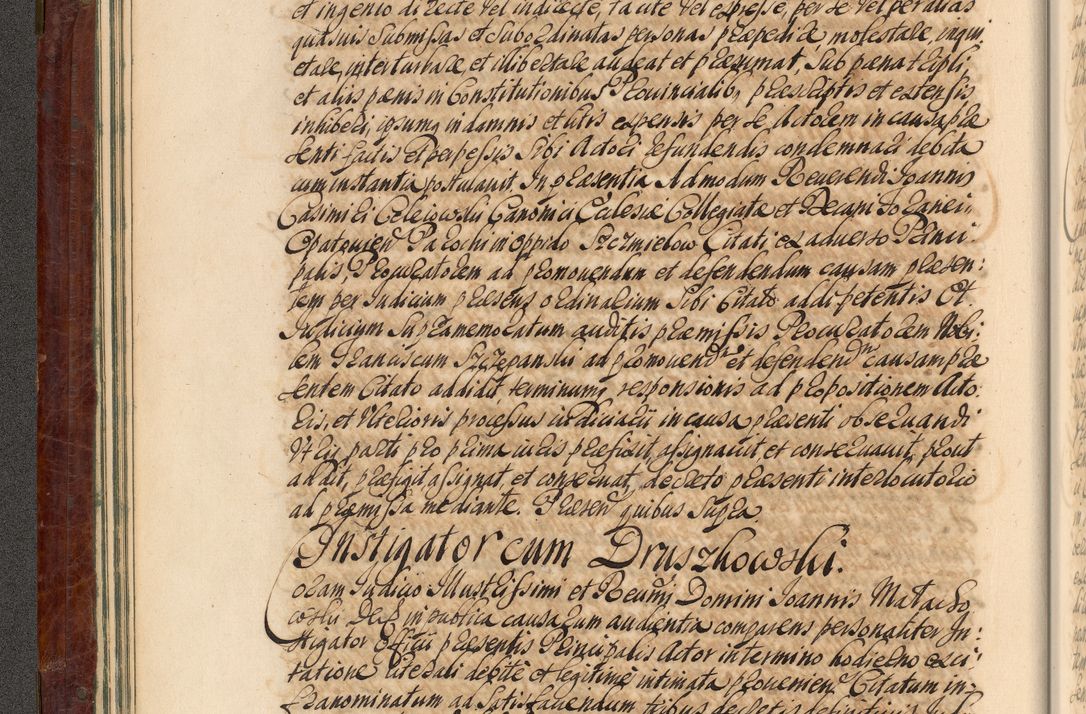 et ingenio directe vel indirecte, tacite vel expresse, per se vel per alias
quasvis submissas et subordinatas personas præpedire, molestare, inqui
etare, interturbare, et illibertare audeat et præsumat, sub pæna tripli,
et aliis pænis in Constitutionibus Provincialib, præscriptis et extensis
inhiberi, ipsumq in damnis et litis expensis per se Actorem in causa præ
senti factis et perpessis sibi Actori refundendis condemnari debita
cum instantia postulavit. In præsentia Admodum Reverendi Joannis
Casimiri Canonici Ecclesiæ Collegiatæ et Decani foranei
Opatovien Parochi in oppido Szczmielow Citati ex adverso Princi
palis Procuratorem ad promovendum et defendendum causam præsen:
tem per Judicium præsens ordinarium sibi Citato addi petentis Et.
Judicium supramemoratum auditis præmissis Procuratorem Nobi
lem Franciscum Szczepanski ad promovend et defendend causam præ
sentem Citato addidit terminumq responsionis ad propositionem Acto:
ris, et ulterioris processus judiciarii in causa præsenti observandi
Utriq parti pro prima juris præfixit, assignavit et conservavit, prout
addit, præfigit assignat, et conservat, decreto præsenti interlocutorio
ad præmissa mediante. Præsen quibus supra
Instigator cum Druszkowski.
Coram Judicio Illustrissimi et Reverendi Domini Joannis Matacho
coski in publica causarum audientia comparens personaliter In:
stigator Officii præsentis Principalis Actor in termino hodierno ex ci:
tatione literali debite et legitime intimata provenien Citatum in:
franominatum ad satisfaciendum tribus decretis definitivis